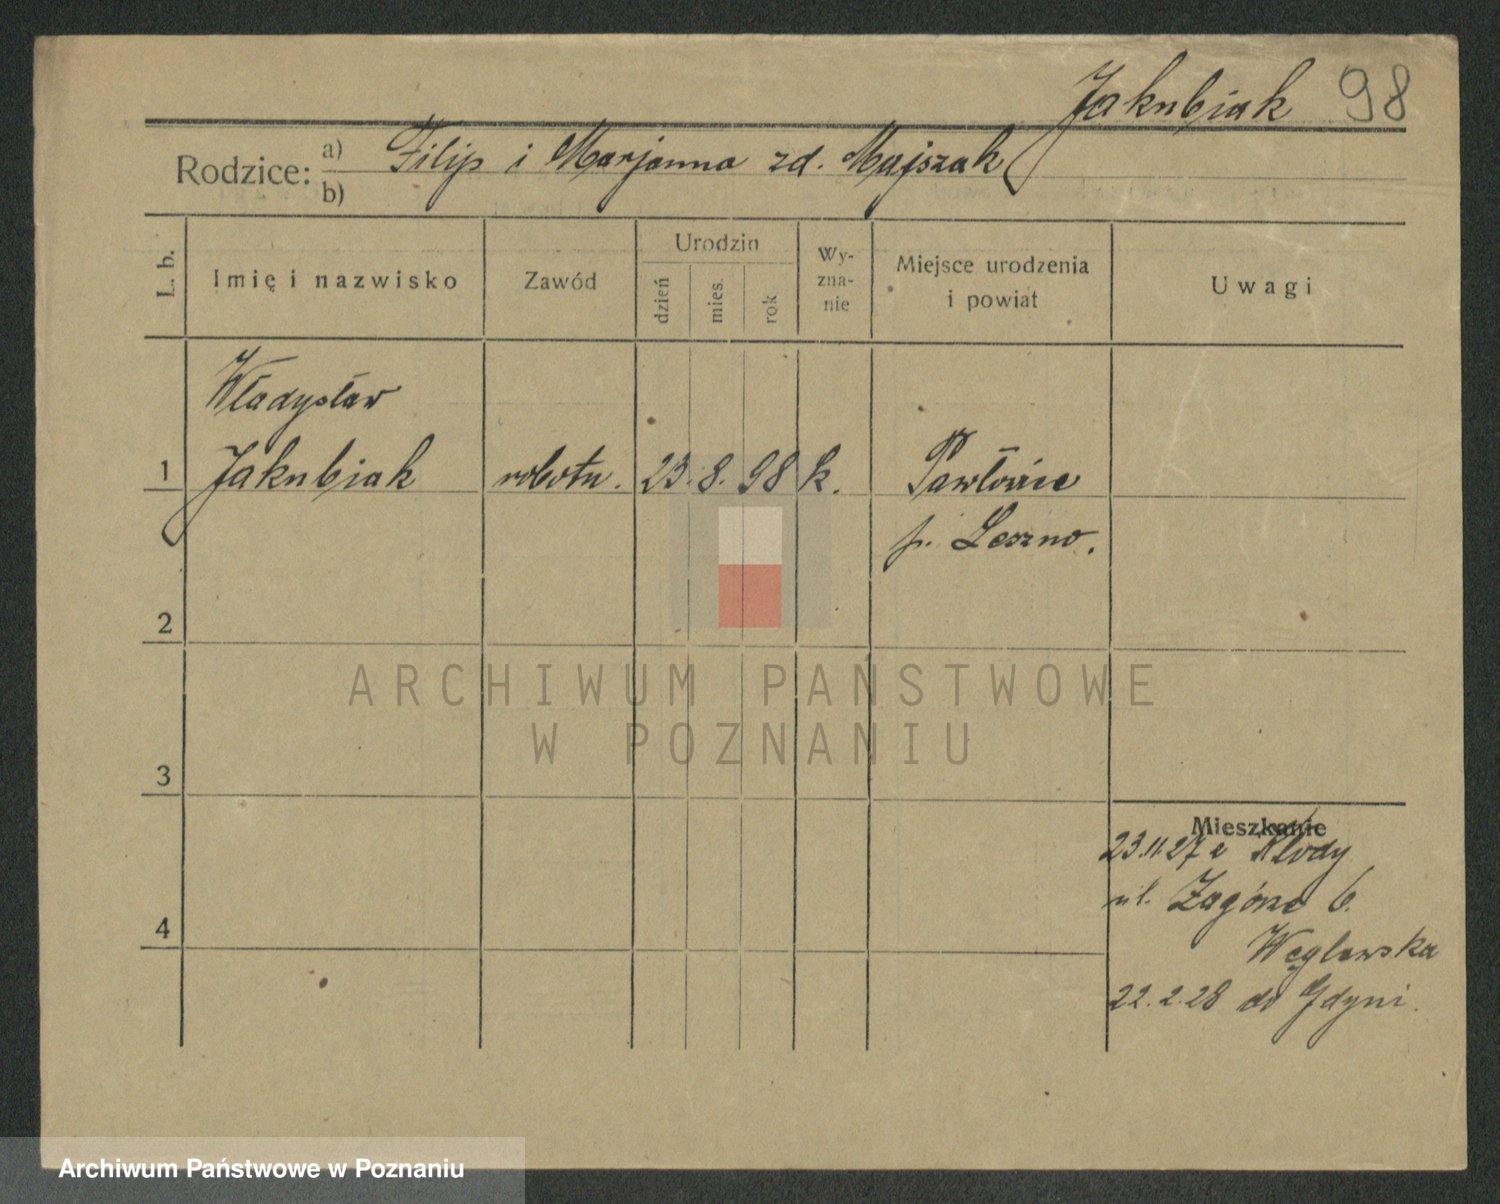 Jakubiak 98
Rodzice: a) Filip i Marjanna zd. Majszak
b)
L. b. Imię i nazwisko Zawód Urodzin dzień mies. rok Wy-zna-nie Miejsce urodzenia i powiat Uwagi
Władysław
1 Jakubiak robotn. 23. 8. 98 k. Pawłowice
p. Leszno.
2
ARCHIWUM PAŃSTWOWE
W POZNANIU
3
Mieszkanie
23.11.27 z Kłody
ul. Zagórze 6.
4
Węglewska
22.2.28 do Gdyni.
Archiwum Państwowe w Poznaniu